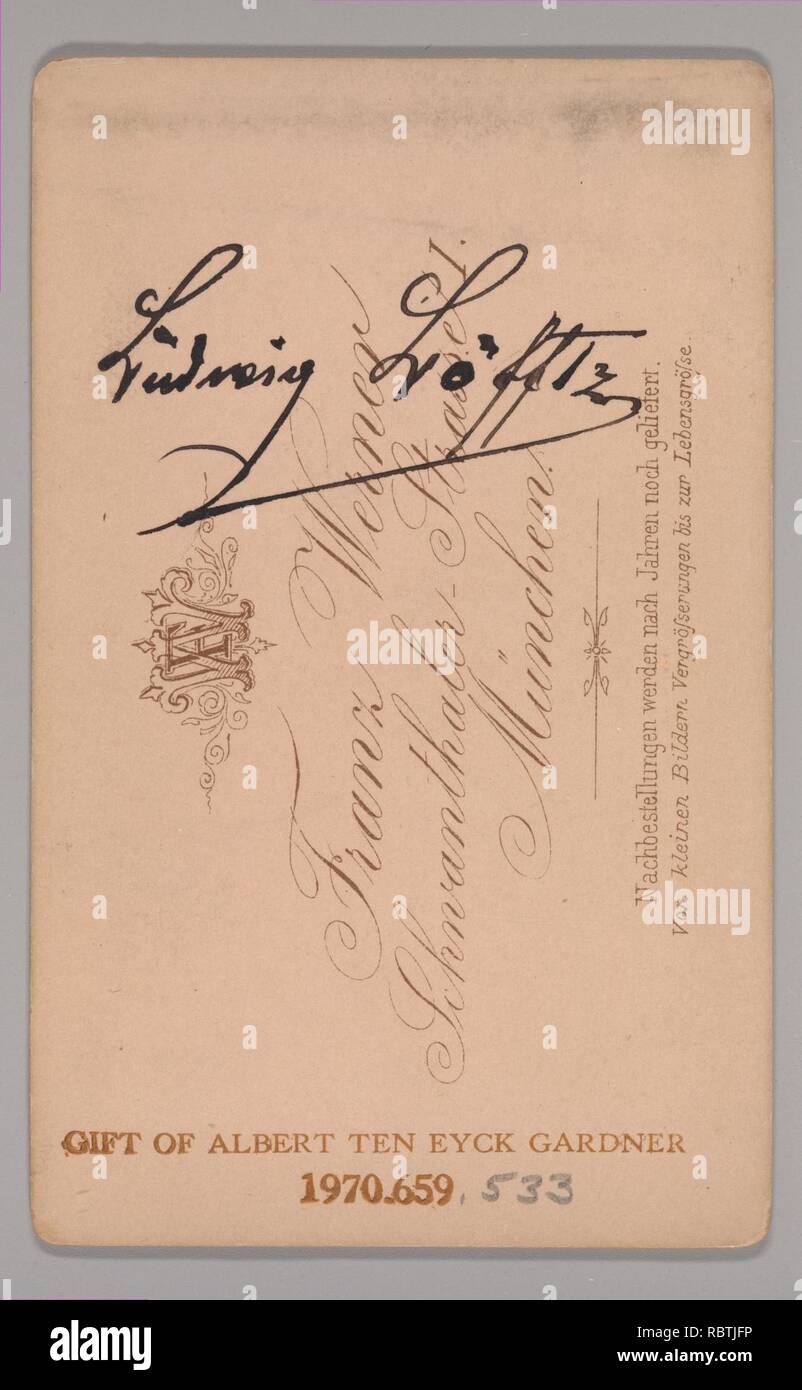 Ludwig Löfftz
Franz Werner
Schwanthaler-Strasse 1.
München.
Nachbestellungen werden nach Jahren noch geliefert.
Von kleinen Bildern Vergröſserungen bis zur Lebensgröſse.
GIFT OF ALBERT TEN EYCK GARDNER
1970.659.533
a alamy
alamy
Image ID: RBTJFP
www.alamy.com